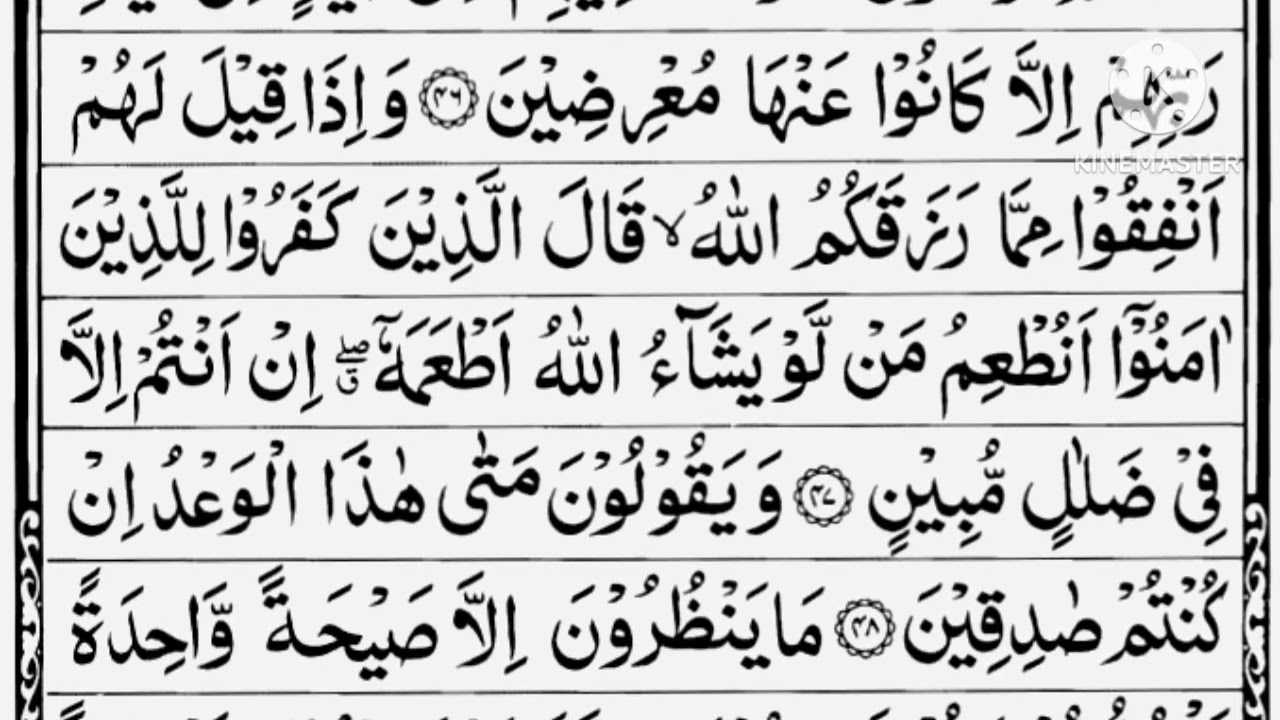 رَبِّهِمْ اِلَّا كَانُوْا عَنْهَا مُعْرِضِيْنَ ﴿۴۶﴾ وَ اِذَا قِيْلَ لَهُمْ
KINEMASTER
اَنْفِقُوْا مِمَّا رَزَقَكُمُ اللّٰهُ ۙ قَالَ الَّذِيْنَ كَفَرُوْا لِلَّذِيْنَ
اٰمَنُوْۤا اَنُطْعِمُ مَنْ لَّوْ يَشَآءُ اللّٰهُ اَطْعَمَهٗۤ ۖۗ اِنْ اَنْتُمْ اِلَّا
فِيْ ضَلٰلٍ مُّبِيْنٍ ﴿۴۷﴾ وَ يَقُوْلُوْنَ مَتٰى هٰذَا الْوَعْدُ اِنْ
كُنْتُمْ صٰدِقِيْنَ ﴿۴۸﴾ مَا يَنْظُرُوْنَ اِلَّا صَيْحَةً وَّاحِدَةً